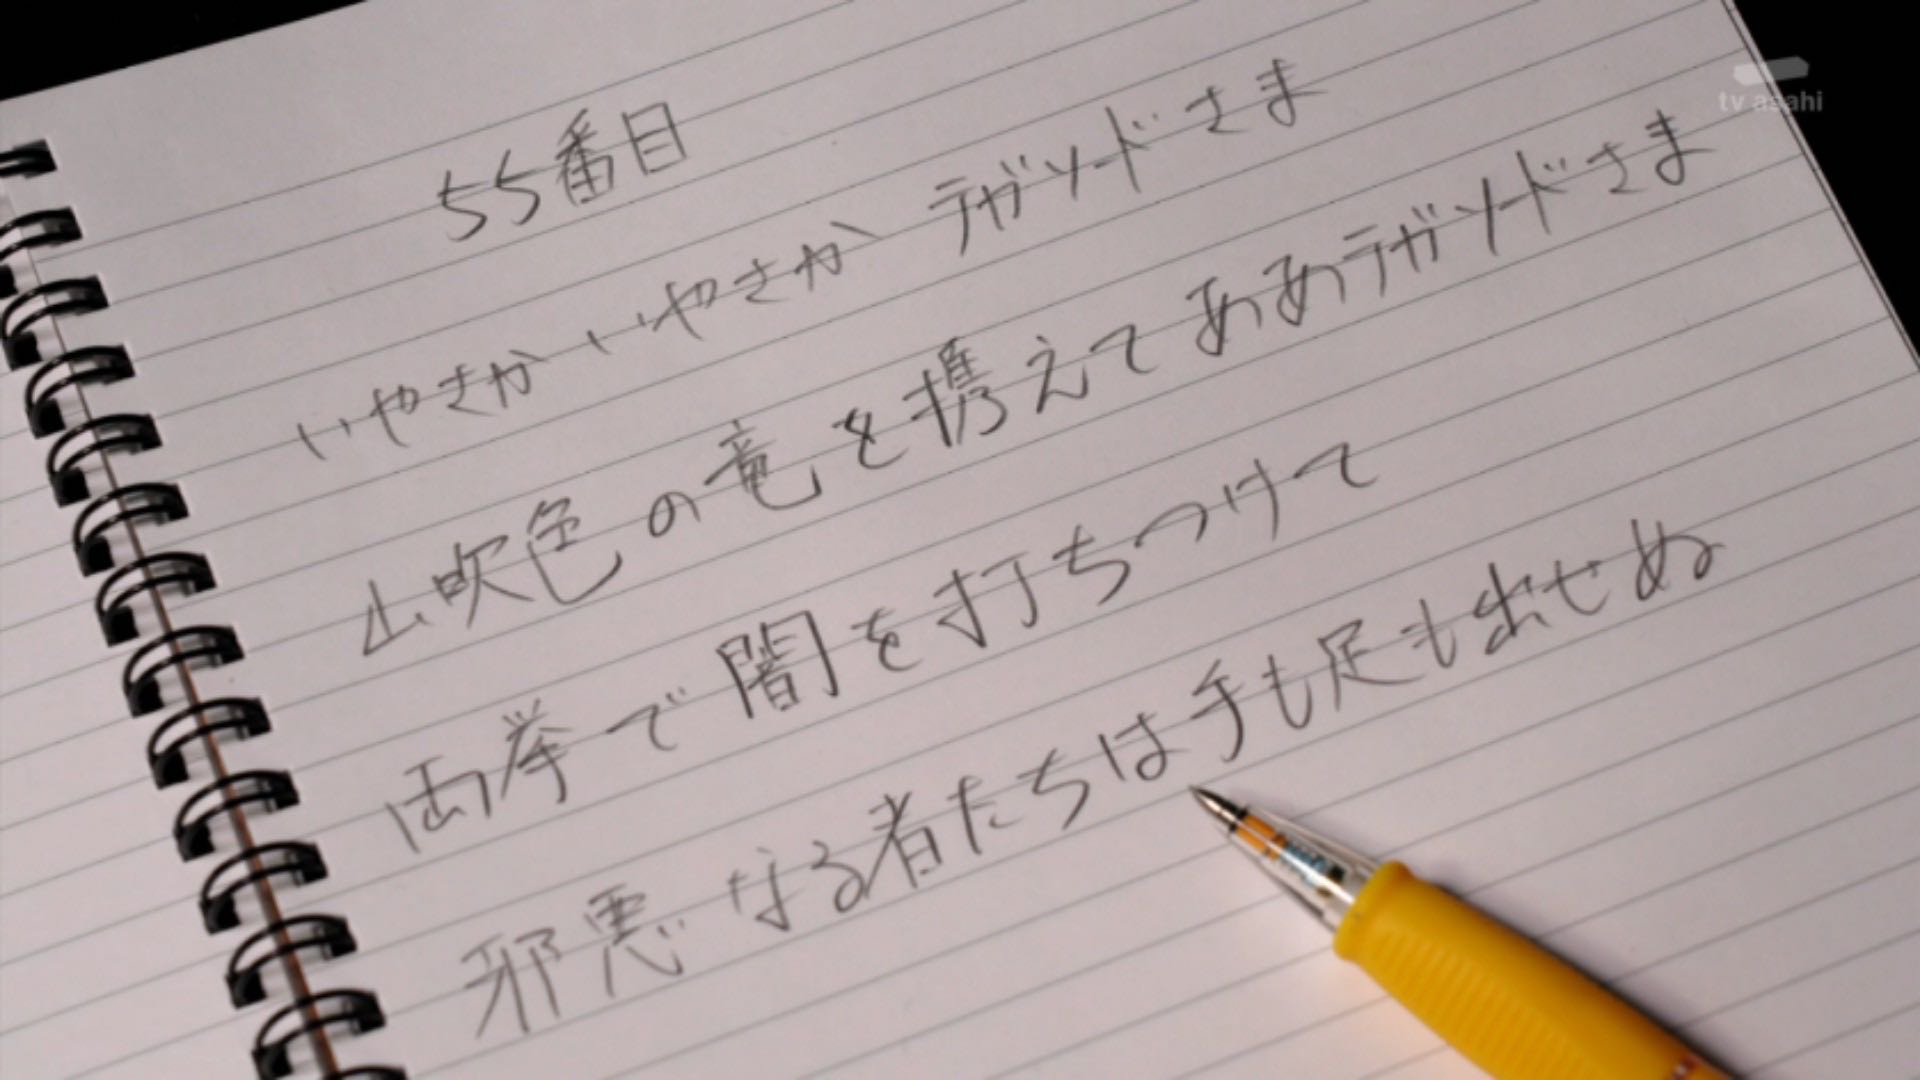 tv asahi
55番目
いやさか いやさか テガソードさま
山吹色の竜を携えて ああテガソードさま
両挙で闇を打ちつけて
邪悪なる者たちは手も足も出せぬ